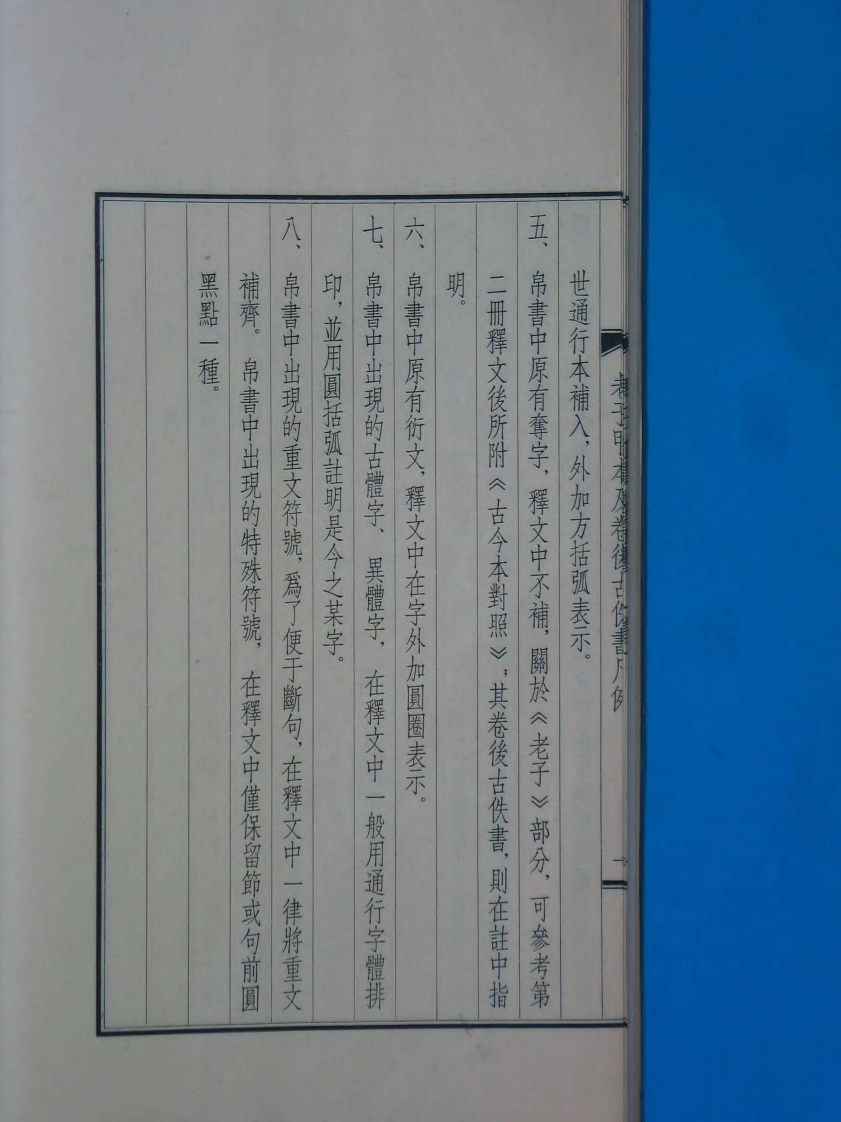 老子甲本及卷後古佚書凡例
一
世通行本補入，外加方括弧表示。
五、帛書中原有奪字，釋文中不補，關於《老子》部分，可參考第
二冊釋文後所附《古今本對照》，其卷後古佚書，則在註中指
明。
六、帛書中原有衍文，釋文中在字外加圓圈表示。
七、帛書中出現的古體字、異體字，在釋文中一般用通行字體排
印，並用圓括弧註明是今之某字。
八、帛書中出現的重文符號，爲了便于斷句，在釋文中一律將重文
補齊。帛書中出現的特殊符號，在釋文中僅保留節或句前圓
黑點一種。